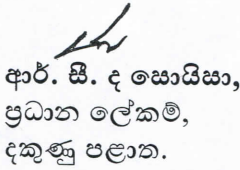 ආර්. සී. ද සොයිසා,
ප්‍රධාන ලේකම්,
දකුණු පළාත.